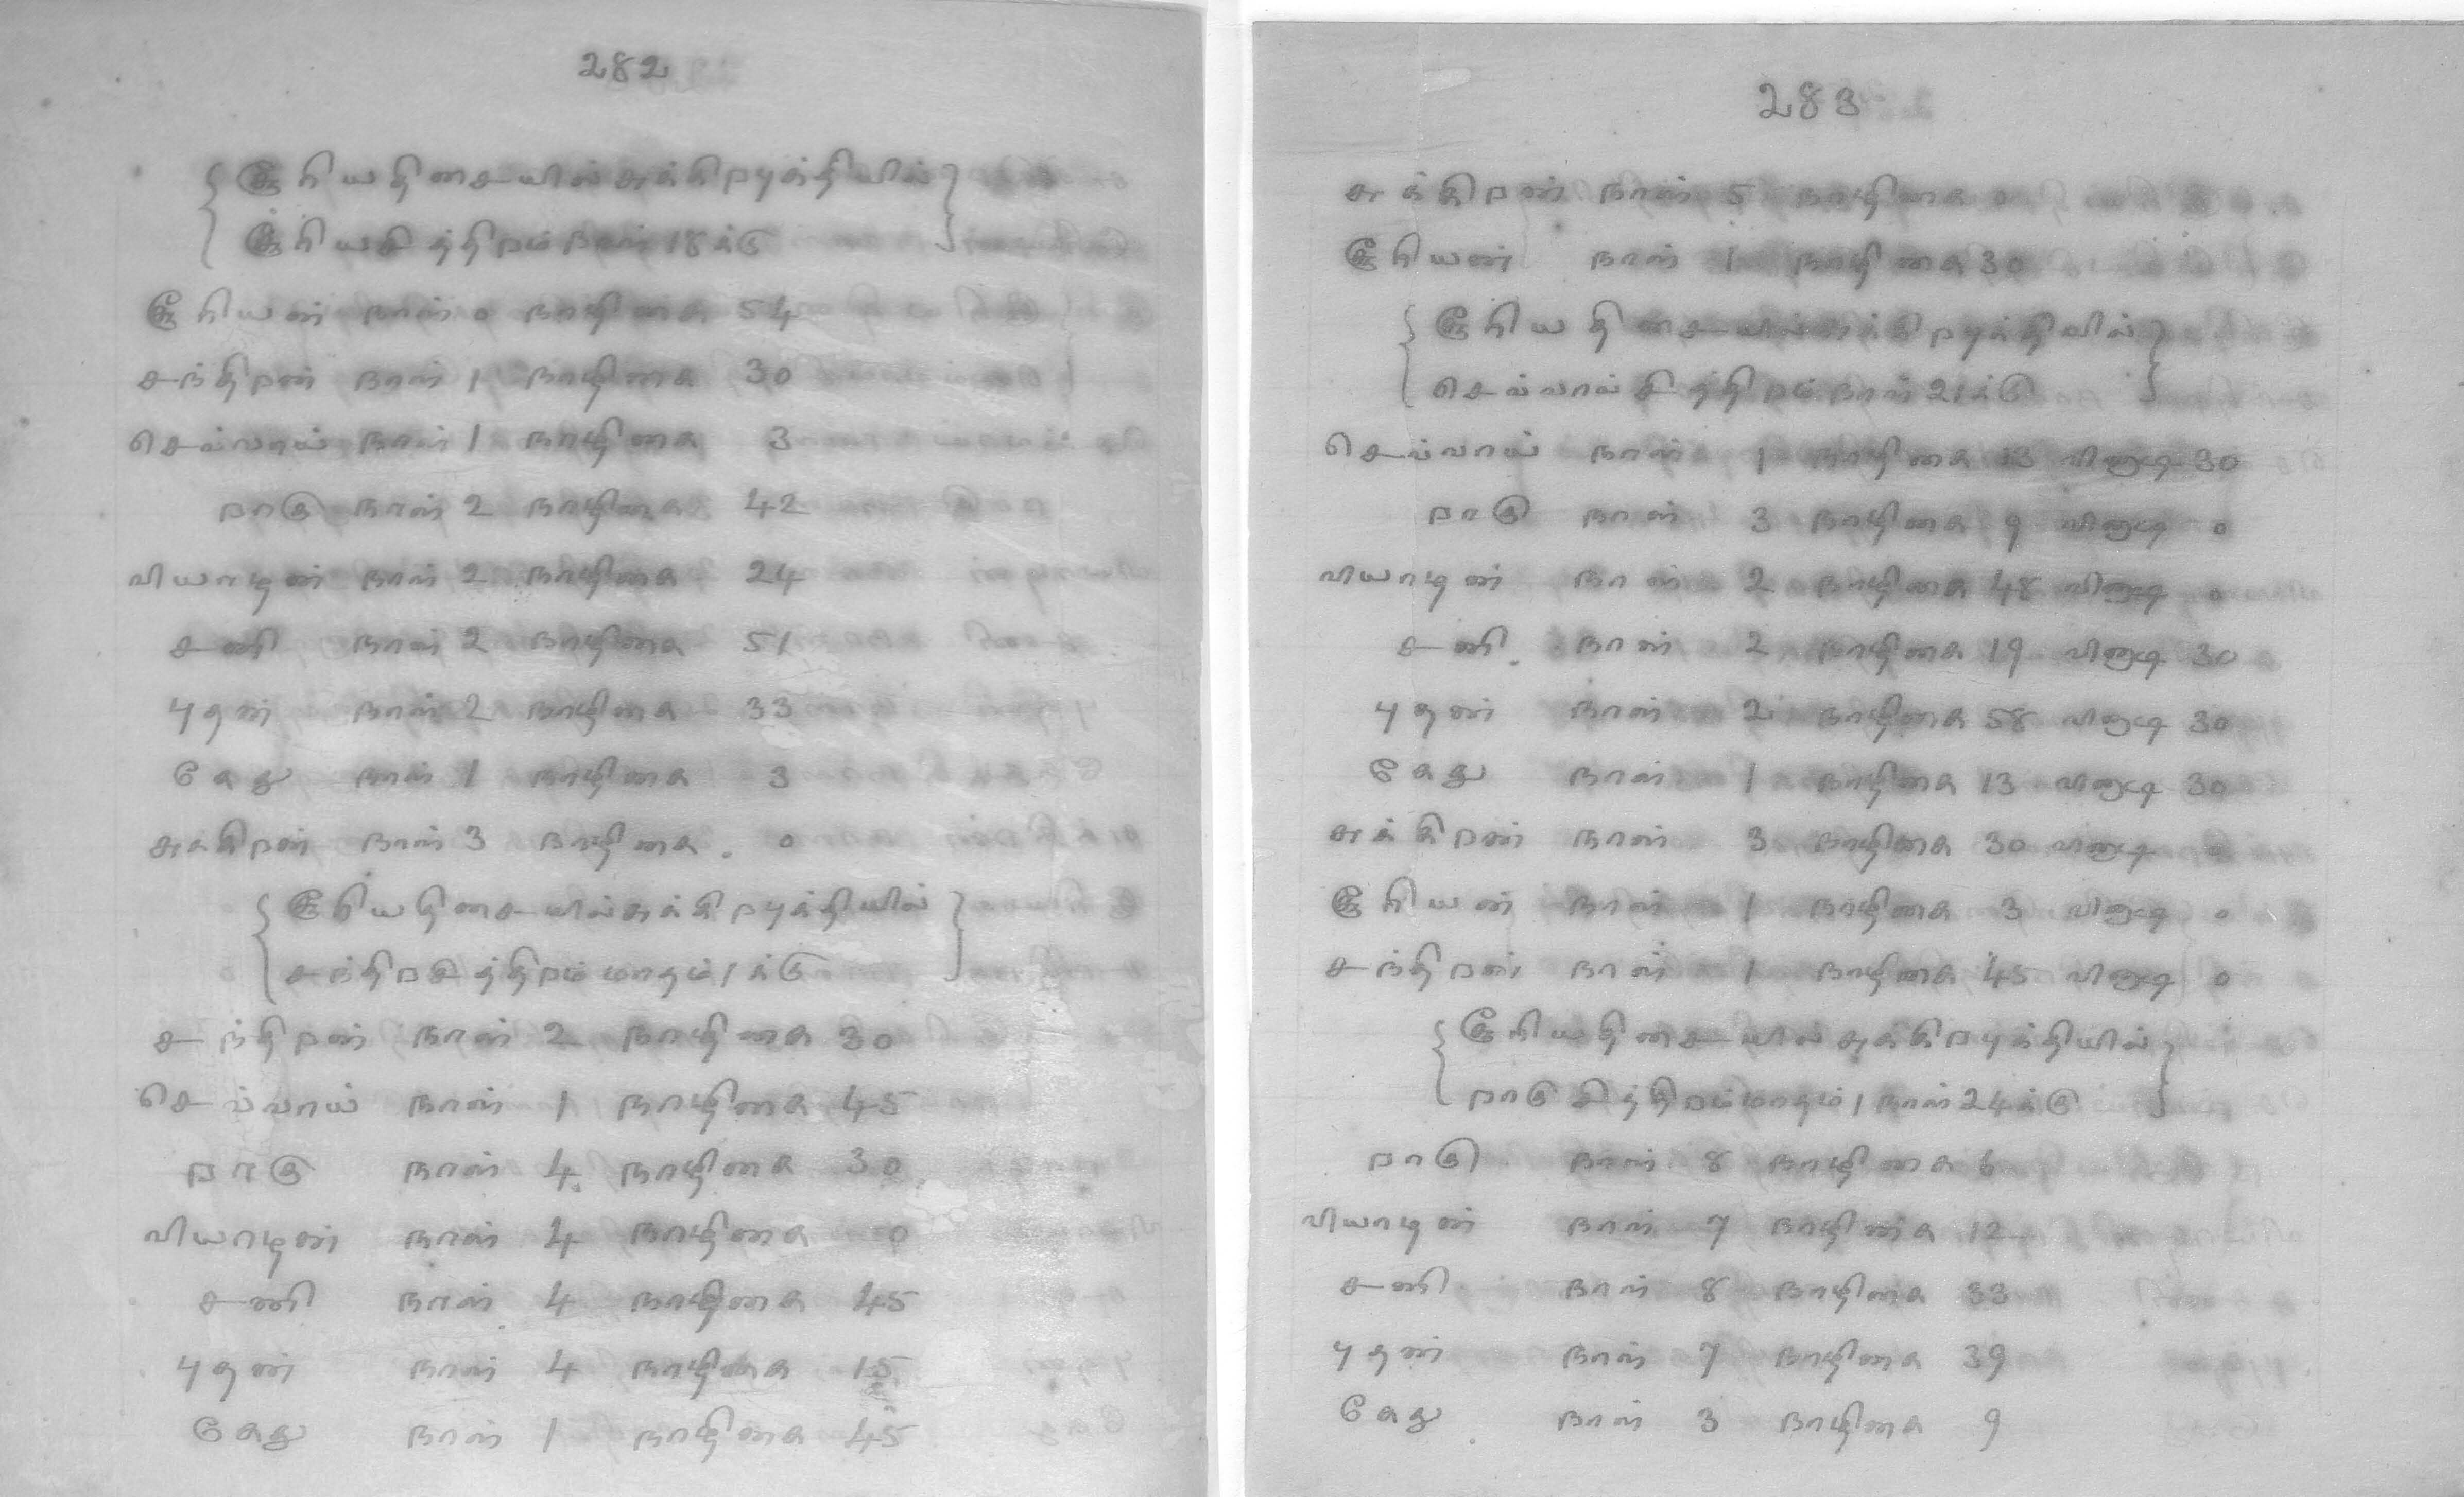 282
சூரியதிசையில் சுக்கிரபுக்தியில்
சூரியசித்திரம் நாள் 18க்கு
சூரியன் நாள் 0 நாழிகை 54
சந்திரன் நாள் 1 நாழிகை 30
செவ்வாய் நாள் 1 நாழிகை 3
ராகு நாள் 2 நாழிகை 42
வியாழன் நாள் 2 நாழிகை 24
சனி நாள் 2 நாழிகை 51
புதன் நாள் 2 நாழிகை 33
கேது நாள் 1 நாழிகை 3
சுக்கிரன் நாள் 3 நாழிகை 0
சூரியதிசையில் சுக்கிரபுக்தியில்
சந்திரசித்திரம் மாதம் 1க்கு
சந்திரன் நாள் 2 நாழிகை 30
செவ்வாய் நாள் 1 நாழிகை 45
ராகு நாள் 4 நாழிகை 30
வியாழன் நாள் 4 நாழிகை 0
சனி நாள் 4 நாழிகை 45
புதன் நாள் 4 நாழிகை 15
கேது நாள் 1 நாழிகை 45
283
சுக்கிரன் நாள் 5 நாழிகை 0
சூரியன் நாள் 1 நாழிகை 30
சூரியதிசையில் சுக்கிரபுக்தியில்
செவ்வாய்சித்திரம் நாள் 21க்கு
செவ்வாய் நாள் 1 நாழிகை 13 வினாடி 30
ராகு நாள் 3 நாழிகை 9 வினாடி 0
வியாழன் நாள் 2 நாழிகை 48 வினாடி 0
சனி நாள் 2 நாழிகை 19 வினாடி 30
புதன் நாள் 2 நாழிகை 58 வினாடி 30
கேது நாள் 1 நாழிகை 13 வினாடி 30
சுக்கிரன் நாள் 3 நாழிகை 30 வினாடி 0
சூரியன் நாள் 1 நாழிகை 3 வினாடி 0
சந்திரன் நாள் 1 நாழிகை 45 வினாடி 0
சூரியதிசையில் சுக்கிரபுக்தியில்
ராகுசித்திரம் மாதம் 1 நாள் 24க்கு
ராகு நாள் 8 நாழிகை 6
வியாழன் நாள் 7 நாழிகை 12
சனி நாள் 8 நாழிகை 33
புதன் நாள் 7 நாழிகை 39
கேது நாள் 3 நாழிகை 9